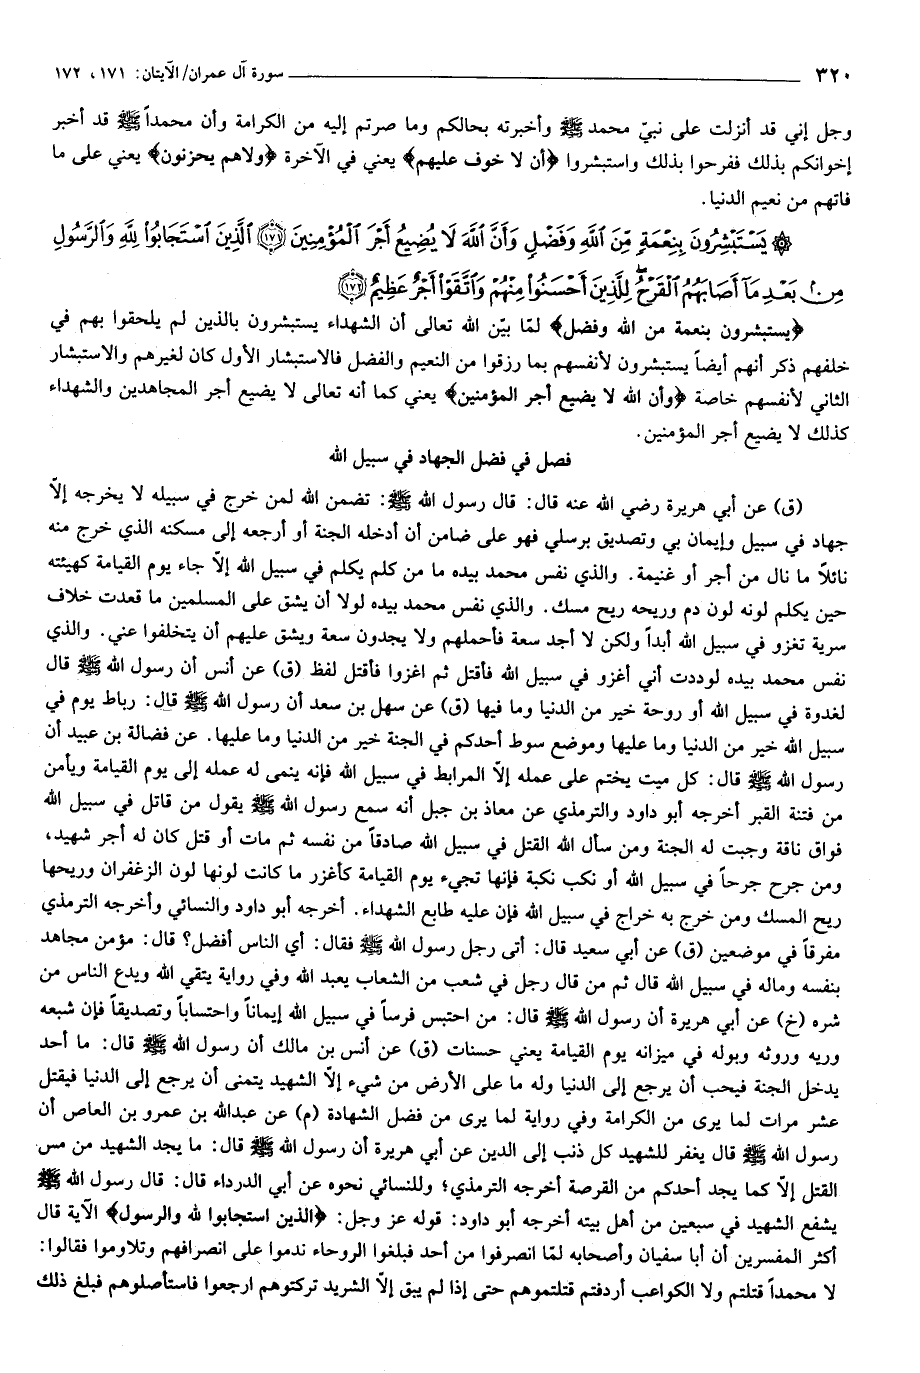 ٣٢٠ سورة آل عمران/ الآيتان: ١٧١ ، ١٧٢
وجل إني قد أنزلت على نبيّ محمد ﷺ وأخبرته بحالكم وما صرتم إليه من الكرامة وأن محمداً ﷺ قد أخبر
إخوانكم بذلك ففرحوا بذلك واستبشروا ﴿أن لا خوف عليهم﴾ يعني في الآخرة ﴿ولاهم يحزنون﴾ يعني على ما
فاتهم من نعيم الدنيا.
۞ يَسْتَبْشِرُونَ بِنِعْمَةٍ مِّنَ ٱللَّهِ وَفَضْلٍ وَأَنَّ ٱللَّهَ لَا يُضِيعُ أَجْرَ ٱلْمُؤْمِنِينَ ﴿١٧١﴾ ٱلَّذِينَ ٱسْتَجَابُوا۟ لِلَّهِ وَٱلرَّسُولِ
مِنۢ بَعْدِ مَآ أَصَابَهُمُ ٱلْقَرْحُ ۚ لِلَّذِينَ أَحْسَنُوا۟ مِنْهُمْ وَٱتَّقَوْا۟ أَجْرٌ عَظِيمٌ ﴿١٧٢﴾
﴿يستبشرون بنعمة من الله وفضل﴾ لمّا بيّن الله تعالى أن الشهداء يستبشرون بالذين لم يلحقوا بهم في
خلفهم ذكر أنهم أيضاً يستبشرون لأنفسهم بما رزقوا من النعيم والفضل فالاستبشار الأول كان لغيرهم والاستبشار
الثاني لأنفسهم خاصة ﴿وأن الله لا يضيع أجر المؤمنين﴾ يعني كما أنه تعالى لا يضيع أجر المجاهدين والشهداء
كذلك لا يضيع أجر المؤمنين.
فصل في فضل الجهاد في سبيل الله
(ق) عن أبي هريرة رضي الله عنه قال: قال رسول الله ﷺ: تضمن الله لمن خرج في سبيله لا يخرجه إلاّ
جهاد في سبيل وإيمان بي وتصديق برسلي فهو على ضامن أن أدخله الجنة أو أرجعه إلى مسكنه الذي خرج منه
نائلاً ما نال من أجر أو غنيمة. والذي نفس محمد بيده ما من كلم يكلم في سبيل الله إلاّ جاء يوم القيامة كهيئته
حين يكلم لونه لون دم وريحه ريح مسك. والذي نفس محمد بيده لولا أن يشق على المسلمين ما قعدت خلاف
سرية تغزو في سبيل الله أبداً ولكن لا أجد سعة فأحملهم ولا يجدون سعة ويشق عليهم أن يتخلفوا عني. والذي
نفس محمد بيده لوددت أني أغزو في سبيل الله فأقتل ثم اغزوا فأقتل لفظ (ق) عن أنس أن رسول الله ﷺ قال
لغدوة في سبيل الله أو روحة خير من الدنيا وما فيها (ق) عن سهل بن سعد أن رسول الله ﷺ قال: رباط يوم في
سبيل الله خير من الدنيا وما عليها وموضع سوط أحدكم في الجنة خير من الدنيا وما عليها. عن فضالة بن عبيد أن
رسول الله ﷺ قال: كل ميت يختم على عمله إلاّ المرابط في سبيل الله فإنه ينمى له عمله إلى يوم القيامة ويأمن
من فتنة القبر أخرجه أبو داود والترمذي عن معاذ بن جبل أنه سمع رسول الله ﷺ يقول من قاتل في سبيل الله
فواق ناقة وجبت له الجنة ومن سأل الله القتل في سبيل الله صادقاً من نفسه ثم مات أو قتل كان له أجر شهيد،
ومن جرح جرحاً في سبيل الله أو نكب نكبة فإنها تجيء يوم القيامة كأغزر ما كانت لونها لون الزغفران وريحها
ريح المسك ومن خرج به خراج في سبيل الله فإن عليه طابع الشهداء. أخرجه أبو داود والنسائي وأخرجه الترمذي
مفرقاً في موضعين (ق) عن أبي سعيد قال: أتى رجل رسول الله ﷺ فقال: أي الناس أفضل؟ قال: مؤمن مجاهد
بنفسه وماله في سبيل الله قال ثم من قال رجل في شعب من الشعاب يعبد الله وفي رواية يتقي الله ويدع الناس من
شره (خ) عن أبي هريرة أن رسول الله ﷺ قال: من احتبس فرساً في سبيل الله إيماناً واحتساباً وتصديقاً فإن شبعه
وريه وروثه وبوله في ميزانه يوم القيامة يعني حسنات (ق) عن أنس بن مالك أن رسول الله ﷺ قال: ما أحد
يدخل الجنة فيحب أن يرجع إلى الدنيا وله ما على الأرض من شيء إلاّ الشهيد يتمنى أن يرجع إلى الدنيا فيقتل
عشر مرات لما يرى من الكرامة وفي رواية لما يرى من فضل الشهادة (م) عن عبدالله بن عمرو بن العاص أن
رسول الله ﷺ قال يغفر للشهيد كل ذنب إلى الدين عن أبي هريرة أن رسول الله ﷺ قال: ما يجد الشهيد من مس
القتل إلاّ كما يجد أحدكم من القرصة أخرجه الترمذي؛ وللنسائي نحوه عن أبي الدرداء قال: قال رسول الله ﷺ
يشفع الشهيد في سبعين من أهل بيته أخرجه أبو داود: قوله عز وجل: ﴿الذين استجابوا لله والرسول﴾ الآية قال
أكثر المفسرين أن أبا سفيان وأصحابه لمّا انصرفوا من أحد فبلغوا الروحاء ندموا على انصرافهم وتلاوموا فقالوا:
لا محمداً قتلتم ولا الكواعب أردفتم قتلتموهم حتى إذا لم يبق إلاّ الشريد تركتوهم ارجعوا فاستأصلوهم فبلغ ذلك